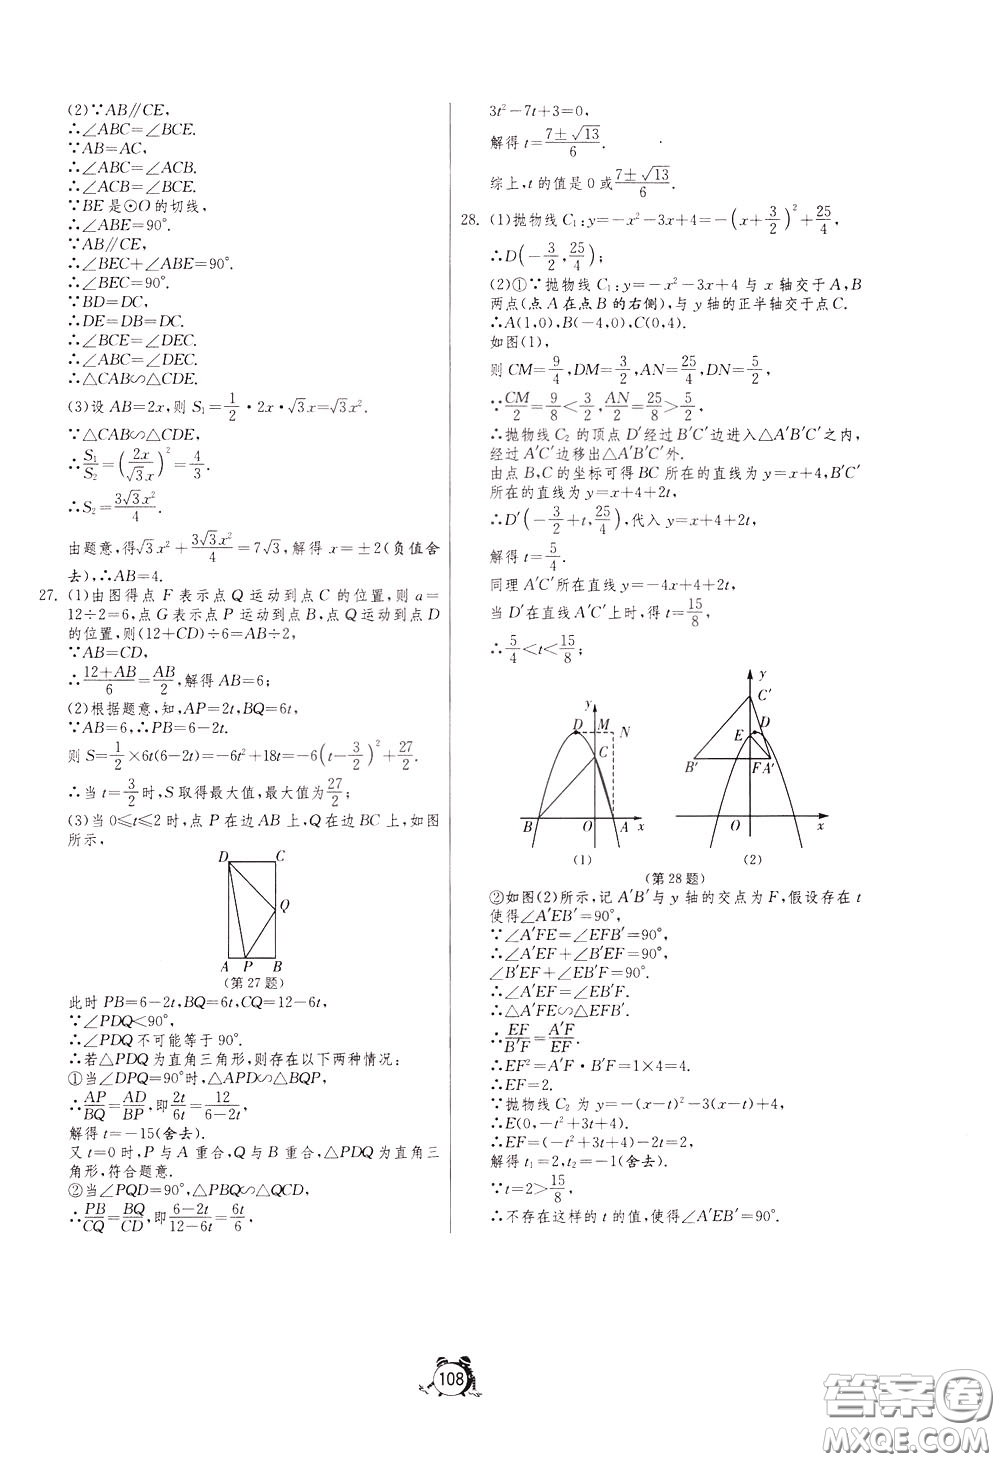 (2)∵AB∥CE,
∴∠ABC=∠BCE.
∵AB=AC,
∴∠ABC=∠ACB.
∴∠ACB=∠BCE.
∵BE是⊙O的切线,
∴∠ABE=90°.
∵AB∥CE,
∴∠BEC+∠ABE=90°.
∴∠BEC=90°.
∵BD=DC,
∴DE=DB=DC.
∴∠BCE=∠DEC.
∴∠ABC=∠DEC.
∴△CAB∽△CDE.
(3)设AB=2x,则S₁=1/2·2x·√3x=√3x².
∵△CAB∽△CDE,
∴S₁/S₂=(2x/√3x)²=4/3.
∴S₂=3√3x²/4.
由题意,得√3x²+3√3x²/4=7√3,解得x=±2(负值舍
去),∴AB=4.
27. (1)由图得点F表示点Q运动到点C的位置,则a=
12÷2=6,点G表示点P运动到点B,点Q运动到点D
的位置,则(12+CD)÷6=AB÷2,
∵AB=CD,
∴(12+AB)/6=AB/2,解得AB=6;
(2)根据题意,知,AP=2t,BQ=6t,
∵AB=6,∴PB=6-2t.
则S=1/2×6t(6-2t)=-6t²+18t=-6(t-3/2)²+27/2.
∴当t=3/2时,S取得最大值,最大值为27/2;
(3)当0≤t≤2时,点P在边AB上,Q在边BC上,如图
所示,
D C
Q
A P B
(第27题)
此时PB=6-2t,BQ=6t,CQ=12-6t,
∵∠PDQ<90°,
∴∠PDQ不可能等于90°.
∴若△PDQ为直角三角形,则存在以下两种情况:
①当∠DPQ=90°时,△APD∽△BQP,
∴AP/BQ=AD/BP,即2t/6t=12/(6-2t),
解得t=-15(舍去).
又t=0时,P与A重合,Q与B重合,△PDQ为直角三
角形,符合题意.
②当∠PQD=90°,△PBQ∽△QCD,
∴PB/CQ=BQ/CD,即(6-2t)/(12-6t)=6t/6,
3t²-7t+3=0,
解得t=(7±√13)/6.
综上,t的值是0或(7±√13)/6.
28. (1)抛物线C₁:y=-x²-3x+4=-(x+3/2)²+25/4,
∴D(-3/2,25/4);
(2)①∵抛物线C₁:y=-x²-3x+4与x轴交于A,B
两点(点A在点B的右侧),与y轴的正半轴交于点C.
∴A(1,0),B(-4,0),C(0,4).
如图(1),
则CM=9/4,DM=3/2,AN=25/4,DN=5/2,
∵CM/2=9/8<3/2,AN/2=25/8>5/2,
∴抛物线C₂的顶点D′经过B′C′边进入△A′B′C′之内,
经过A′C′边移出△A′B′C′外.
由点B,C的坐标可得BC所在的直线为y=x+4,B′C′
所在的直线为y=x+4+2t,
∴D′(-3/2+t,25/4),代入y=x+4+2t,
解得t=5/4.
同理A′C′所在直线y=-4x+4+2t,
当D′在直线A′C′上时,得t=15/8,
∴5/4<t<15/8;
y
D M N
C
B O A x
(1)
y
C′
E D
B′ F A′
O x
(2)
(第28题)
②如图(2)所示,记A′B′与y轴的交点为F,假设存在t
使得∠A′EB′=90°,
∵∠A′FE=∠EFB′=90°,
∴∠A′EF+∠B′EF=90°,
∠B′EF+∠EB′F=90°.
∴∠A′EF=∠EB′F.
∴△A′FE∽△EFB′.
∴EF/B′F=A′F/EF.
∴EF²=A′F·B′F=1×4=4.
∴EF=2.
∵抛物线C₂为y=-(x-t)²-3(x-t)+4,
∴E(0,-t²+3t+4).
∴EF=(-t²+3t+4)-2t=2,
解得t₁=2,t₂=-1(舍去).
∵t=2>15/8,
∴不存在这样的t的值,使得∠A′EB′=90°.
108
答案圈
MXQE.COM